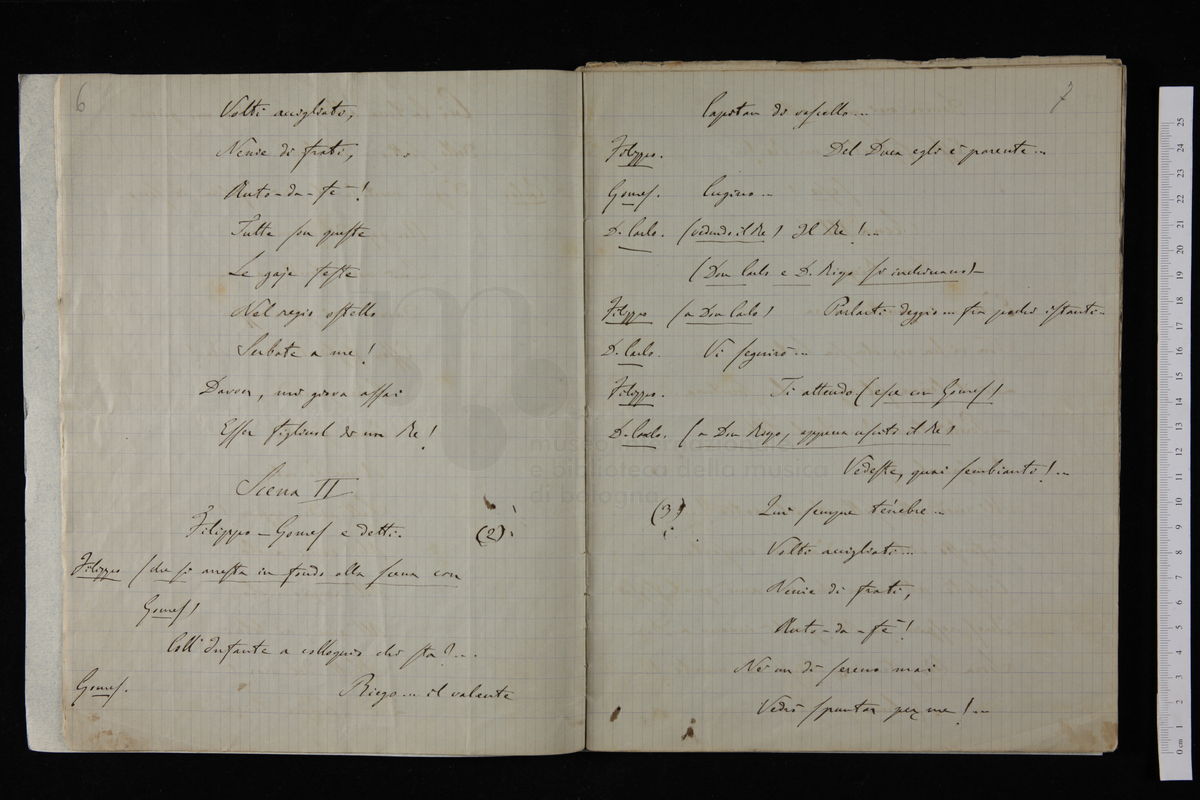 6
Volti accigliati,
Nenie di frati,
Auto-da-fè!
Tutte son queste
Le gaje feste
Nel regio ostello
Serbate a me!
Davver, mi giova assai
Esser figliuol di un Re!
Scena II
Filippo - Gomes e detti.
(2)
Filippo (che si arresta in fondo alla scena con
Gomes)
Coll'Infante a colloquio chi sta?...
Gomes. Riego... il valente
7
Capitan di vascello...
Filippo. Del Duca egli è parente...
Gomes. Cugino...
D. Carlo. (vedendo il Re) Il Re!...
(Don Carlo e D. Riego si inchinano)
Filippo (a Don Carlo) Parlarti deggio... fra pochi istanti...
D. Carlo. Vi seguirò...
Filippo. Ti attendo (esce con Gomes)
D. Carlo. (a Don Riego, appena uscito il Re)
Vedeste, quai sembianti!...
(3)
Qui sempre tenebre...
Volti accigliati...
Nenie di frati,
Auto-da-fè!
Nè un dì sereno mai
Vedrò spuntar per me!...
museo
e biblioteca della musica
di bologna
0 cm 1 2 3 4 5 6 7 8 9 10 11 12 13 14 15 16 17 18 19 20 21 22 23 24 25